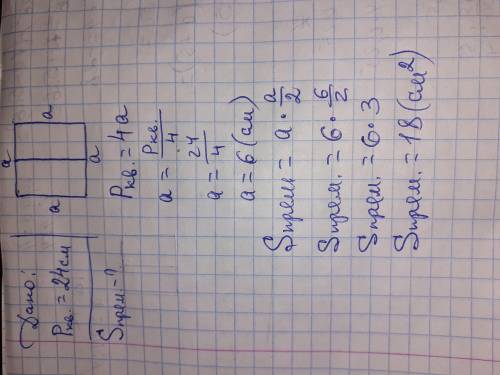 Дано:
Pкв. = 24 см
Sпрям. - ?
a
a
a
a
Pкв. = 4a
a = Pкв. / 4
a = 24 / 4
a = 6 (см)
Sпрям. = a · a / 2
Sпрям. = 6 · 6 / 2
Sпрям. = 6 · 3
Sпрям. = 18 (см²)